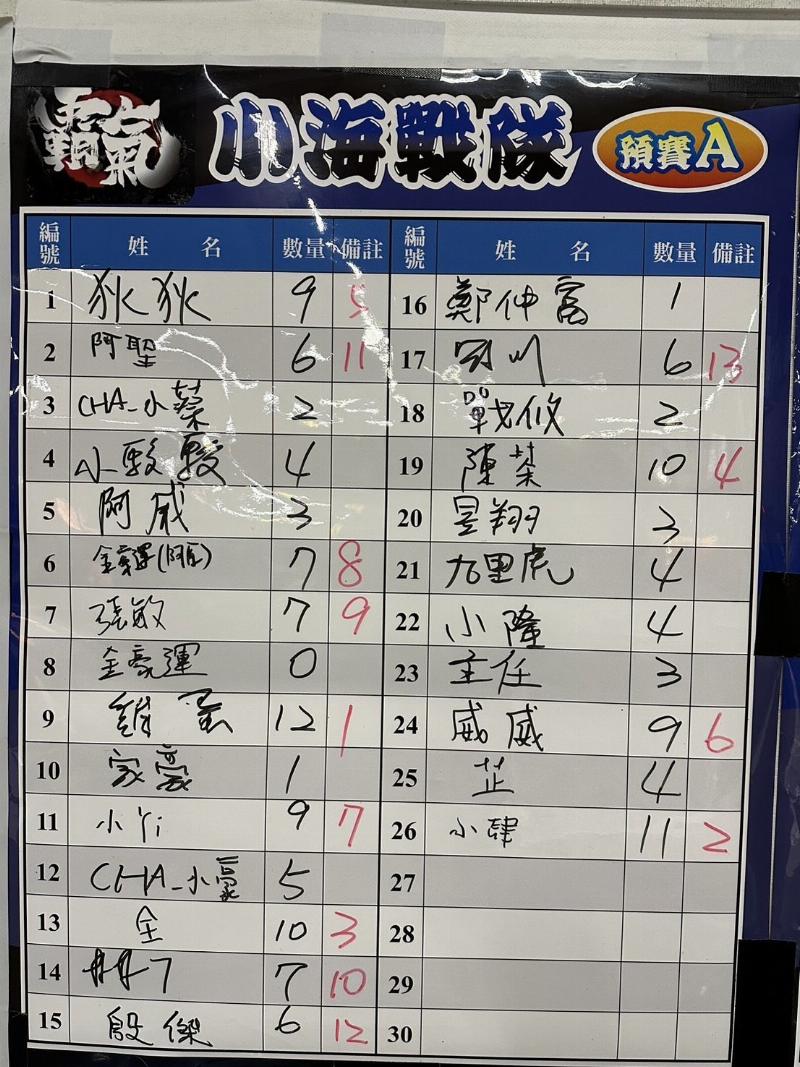 霸氣
小海戰隊
預賽A
編號 姓名 數量 備註 編號 姓名 數量 備註
1 狄狄 9 5 16 鄭仲富 1
2 阿聖 6 11 17 川 6 13
3 CHA-小蔡 2 18 戰攸 2
4 小駿駿 4 19 陳棻 10 4
5 阿威 3 20 昱翔 3
6 金豪運(阿) 7 8 21 九里虎 4
7 張敏 7 9 22 小隆 4
8 金豪運 0 23 主任 3
9 蛋 12 1 24 威威 9 6
10 家豪 1 25 芷 4
11 小Yi 9 7 26 小肆 11 2
12 CHA-小豪 5 27
13 全 10 3 28
14 7 7 10 29
15 殷傑 6 12 30